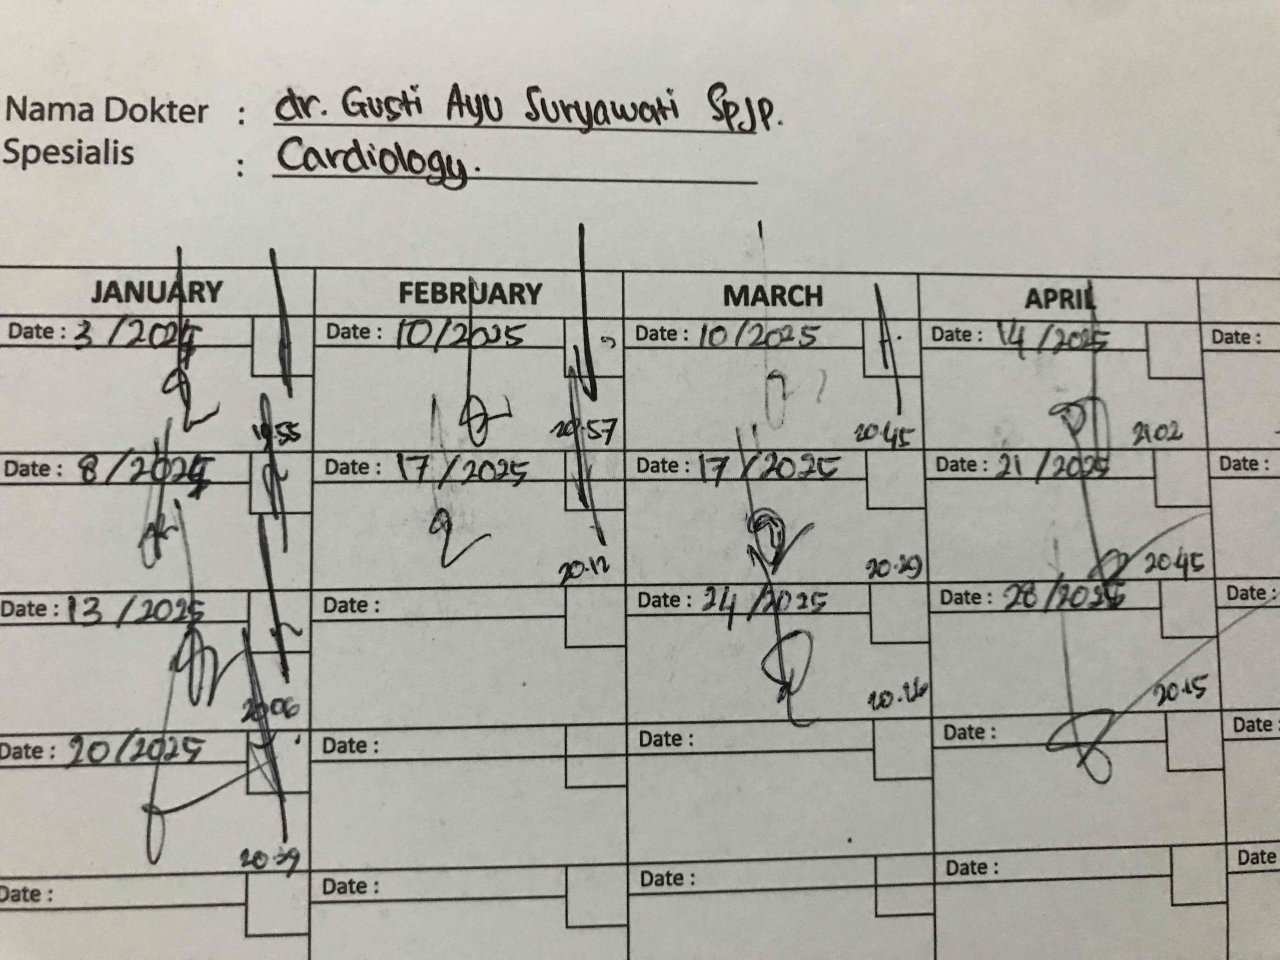 Nama Dokter : dr. Gusti Ayu Suryawati SpJP.
Spesialis : Cardiology.
JANUARY FEBRUARY MARCH APRIL
Date : 3 /2025 Date : 10/2025 Date : 10/2025 Date : 14 /2025 Date :
19.55 20.57 20.45 21.02
Date : 8 /2025 Date : 17 /2025 Date : 17 /2025 Date : 21 /2025 Date :
20.12 20.29 20.45
Date : 13 /2025 Date : Date : 24 /2025 Date : 28 /2025 Date :
20.06 20.15
Date : 20/2025 Date : Date : Date : Date :
20.39
Date : Date : Date : Date : Date